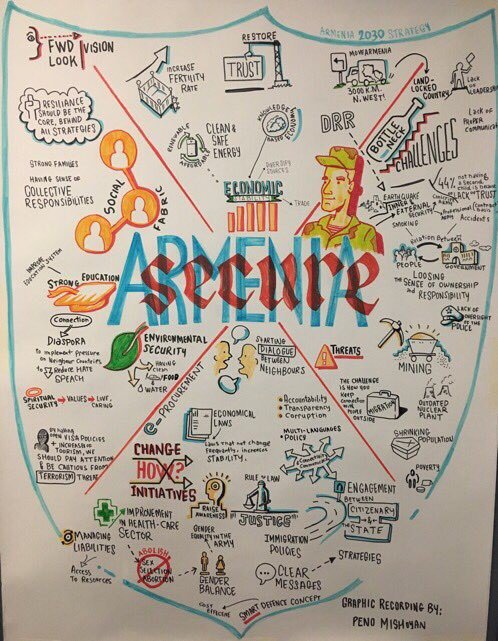 ARMENIA 2030 STRATEGY
FWD
LOOK
VISION
INCREASE
FERTILITY
RATE
RESTORE
TRUST
MOVE ARMENIA
3000 K.M.
N. WEST!
LAND-
LOCKED
COUNTRY
Lack
of
Lack
of
Proper
RESILIANCE
SHOULD BE THE
CORE, BEHIND
All STRATEGIES
RENEWABLE
AFFORDABLE
CLEAN &
SAFE
ENERGY
KNOWLEDGE
BASED
ECONOMY
DIVERSIFY
SOURCES
TRADE
ECONOMIC
STABILITY
DRR
BOTTLE
NECK
CHALLENGES
STRONG FAMILIES
HAVING SENSE OF
COLLECTIVE
RESPONSIBILITIES
SOCIAL
FABRIC
44%
not having
a second
child is
LACK OF TRUST
EARTHQUAKE
EXTERNAL
SECURITY
SMOKING
Accidents
Relation Between
PEOPLE
GOVERNMENT
LOOSING
THE SENSE OF OWNERSHIP
and RESPONSIBILITY
ARMENIA
SECURE
IMPROVE
EDUCATION SYSTEM
STRONG
EDUCATION
Connection
DIASPORA
To implement PRESSURE
on Neighbour Countries
to REDUCE HATE
SPEACH
SPIRITUAL
SECURITY
VALUES
LOVE,
CARING
ENVIRONMENTAL
SECURITY
HAVING
CLEAN
FOOD
&
WATER
PROCUREMENT
STARTING
DIALOGUE
BETWEEN
NEIGHBOURS
THREATS
LACK OF
OVERSIGHT
OF THE
POLICE
MINING
THE CHALLENGE
IS HOW YOU
KEEP
CONNECTION
WITH
PEOPLE
OUTSIDE
MIGRATION
OUTDATED
NUCLEAR
PLANT
Accountability
Transparency
Corruption
SHRINKING
POPULATION
POVERTY
by having
OPEN VISA POLICIES
+ INCREASE OF
TOURISM, WE
SHOULD PAY ATTENTION
& BE CAUTIOUS FROM
TERRORISM THREAT
ECONOMICAL
LAWS
Laws that not change
frequently, increases
STABILITY.
MULTI-LANGUAGES
POLICY
CHANGE
HOW?
INITIATIVES
IMPROVEMENT
IN HEALTH-CARE
SECTOR
RAISE
AWARENESS
RULE OF LAW
"JUSTICE"
ENGAGEMENT
BETWEEN
CITIZENARY
&
THE STATE
MANAGING
LIABILITIES
Access
To Resources
ABOLISH
SEX
SELECTION
ABORTION
GENDER
EQUALITY IN THE
ARMY
GENDER
BALANCE
IMMIGRATION
POLICIES
STRATEGIES
CLEAR
MESSAGES
COST
EFFECTIVE
SMART DEFENCE CONCEPT
GRAPHIC RECORDING BY:
PENO MISHOYAN